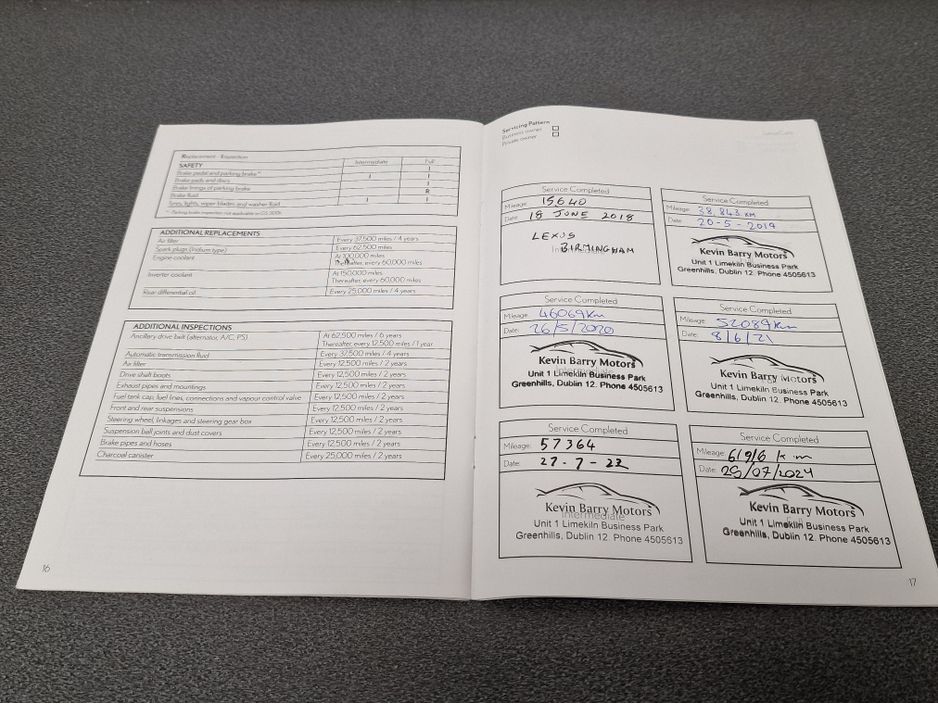 Replacement Inspection
Intermediate Full
SAFETY I
Brake pedal and parking brake* I I
Brake pads and discs I
Brake linings of parking brake
Brake fluid R
Tyres, lights, wiper blades and washer fluid I I
*- Parking brake inspection not applicable to GS 300h
ADDITIONAL REPLACEMENTS
Air filter Every 37,500 miles / 4 years
Spark plugs (Iridium type) Every 62,500 miles
Engine coolant At 100,000 miles
Thereafter, every 60,000 miles
Inverter coolant At 150,000 miles
Thereafter, every 60,000 miles
Rear differential oil Every 25,000 miles / 4 years
ADDITIONAL INSPECTIONS
Ancillary drive belt (alternator, A/C, PS) At 62,500 miles / 6 years
Thereafter, every 12,500 miles / 1 year
Automatic transmission fluid Every 37,500 miles / 4 years
Air filter Every 12,500 miles / 2 years
Drive shaft boots Every 12,500 miles / 2 years
Exhaust pipes and mountings Every 12,500 miles / 2 years
Fuel tank cap, fuel lines, connections and vapour control valve Every 12,500 miles / 2 years
Front and rear suspensions Every 12,500 miles / 2 years
Steering wheel, linkages and steering gear box Every 12,500 miles / 2 years
Suspension ball joints and dust covers Every 12,500 miles / 2 years
Brake pipes and hoses Every 12,500 miles / 2 years
Charcoal canister Every 25,000 miles / 2 years
16
Servicing Pattern
Business owner
Private owner
Service Completed
Mileage: 15640
Date: 18 JUNE 2018
LEXUS
BIRMINGHAM
Service Completed
Mileage: 38,843 KM
Date: 20-5-2019
Kevin Barry Motors
Unit 1 Limekiln Business Park
Greenhills, Dublin 12. Phone 4505613
Service Completed
Mileage: 46069km
Date: 26/5/2020
Kevin Barry Motors
Unit 1 Limekiln Business Park
Greenhills, Dublin 12. Phone 4505613
Service Completed
Mileage: 52089km
Date: 8/6/21
Kevin Barry Motors
Unit 1 Limekiln Business Park
Greenhills, Dublin 12. Phone 4505613
Service Completed
Mileage: 57364
Date: 27-7-22
Kevin Barry Motors
Intermediate
Unit 1 Limekiln Business Park
Greenhills, Dublin 12. Phone 4505613
Service Completed
Mileage: 61916 km
Date: 29/07/2024
Kevin Barry Motors
Unit 1 Limekiln Business Park
Greenhills, Dublin 12. Phone 4505613
17